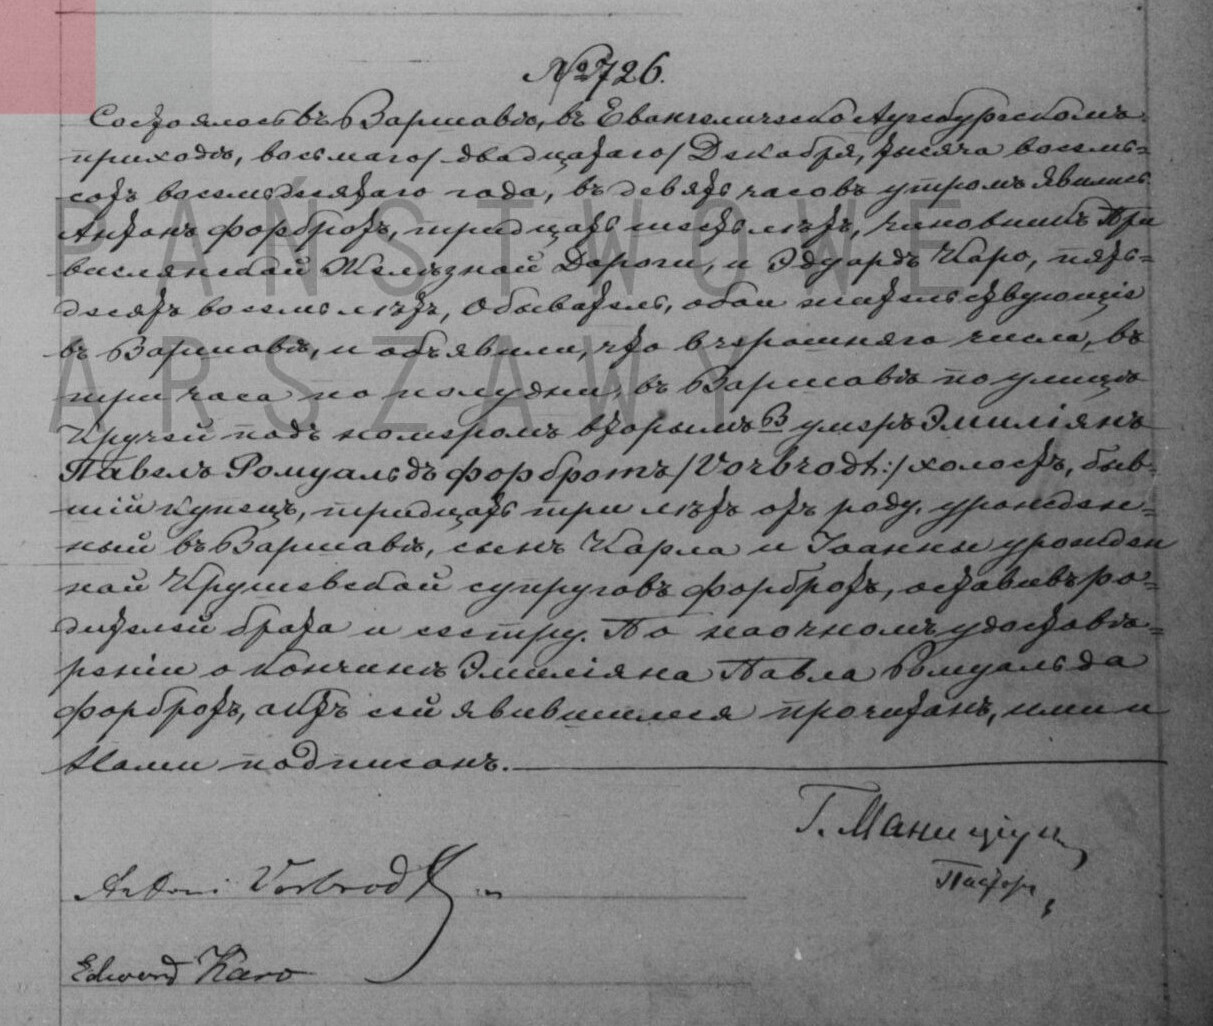 № 726.
Состоялось въ Варшавѣ, въ Евангелическо Аугсбургскомъ
приходѣ, восьмаго / двадцатаго / Декабря, тысяча восемь=
сотъ восемьдесятаго года, въ девять часовъ утромъ явились
Антонъ Форбротъ, тридцать шесть лѣтъ, чиновникъ При
вислянской Желѣзной Дороги, и Эдуардъ Каро, пять=
десятъ восемь лѣтъ, Обыватель, оба жительствующіе
въ Варшавѣ, и объявили, что вчерашняго числа, въ
три часа по полудни, въ Варшавѣ по улицѣ
Кручей подъ номеромъ вторымъ В умеръ Эмиліянъ
Павелъ Ромуальдъ Форбротъ / Vorbrodt :/ холостъ, быв=
шій купецъ, тридцать три лѣтъ отъ роду, урожден=
ный въ Варшавѣ, сынъ Карла и Іоанны урожден
ной Крушевской супруговъ Форбротъ, оставивъ ро=
дителей брата и сестру. По наочномъ удостовѣ=
реніи о кончинѣ Эмиліяна Павла Ромуальда
Форбротъ, актъ сей явившимся прочитанъ, ими и
Нами подписанъ.
Г. Маниціусъ,
Пасторъ,
Antoni Vorbrodt
Edward Karo
PAŃSTWOWE
ARSZAWY